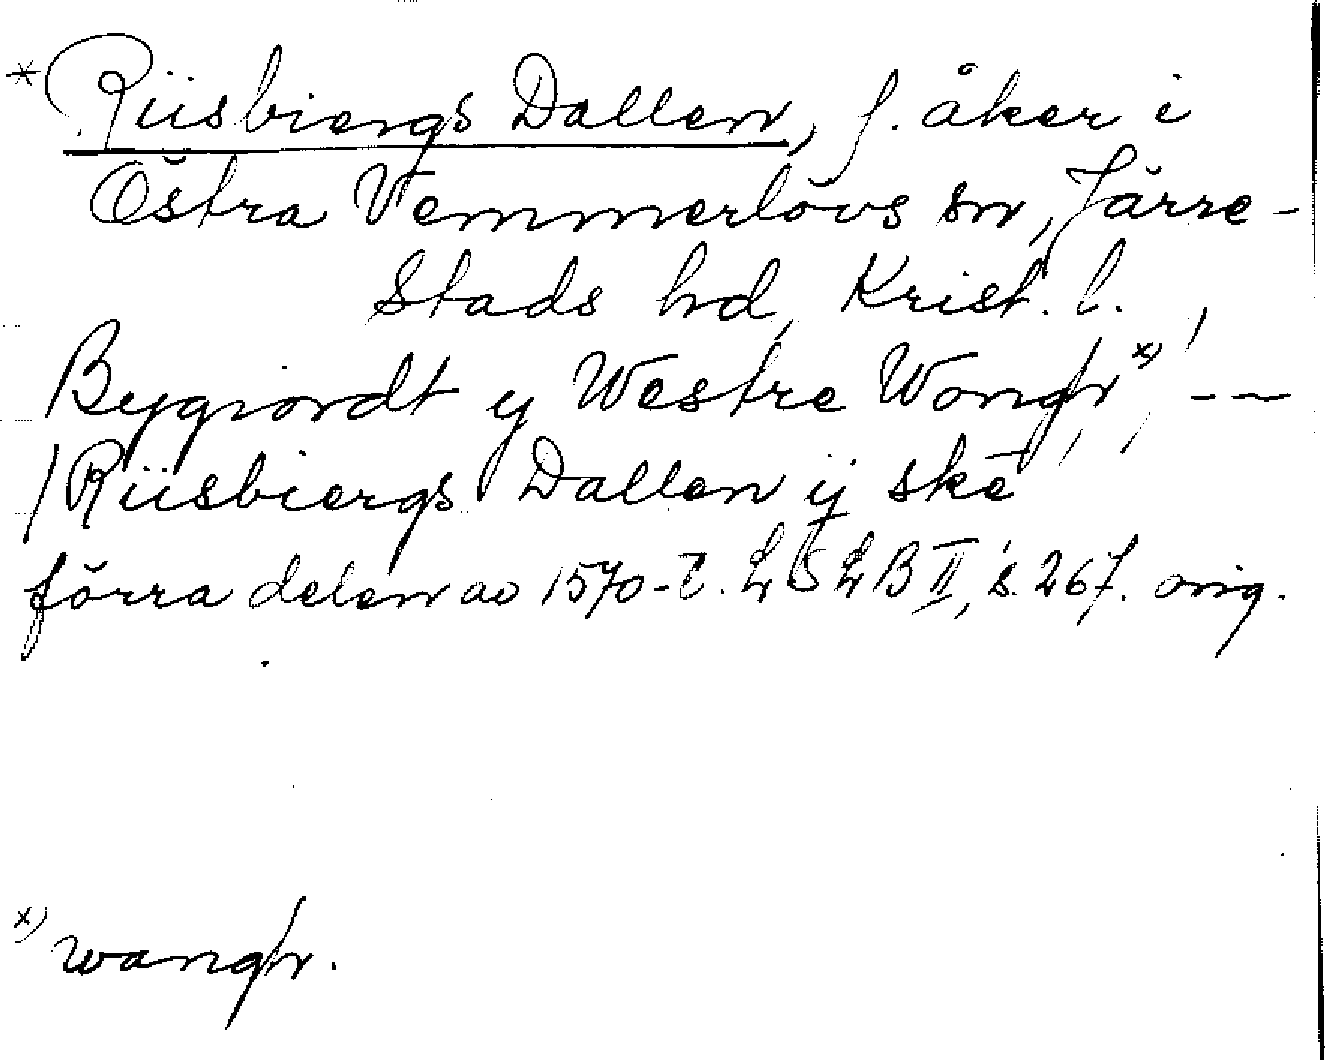 * Riisbiergs Dallen, f. åker i
Östra Vemmerlövs sn, Järre-
stads hd, Krist. l.
Bygiordt y Westre Wongh x), --
/Riisbiergs Dallen ij ske
förra delen av 1570-t. LSLB II, s. 267. orig.
x) wangh.